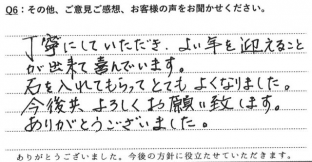 Q6：その他、ご意見ご感想、お客様の声をお聞かせください。
丁寧にしていただき、よい年を迎えること
が出来て喜んでいます。
石を入れてもらってとてもよくなりました。
今後共よろしくお願い致します。
ありがとうございました。
ありがとうございました。今後の方針に役立たせていただきます。